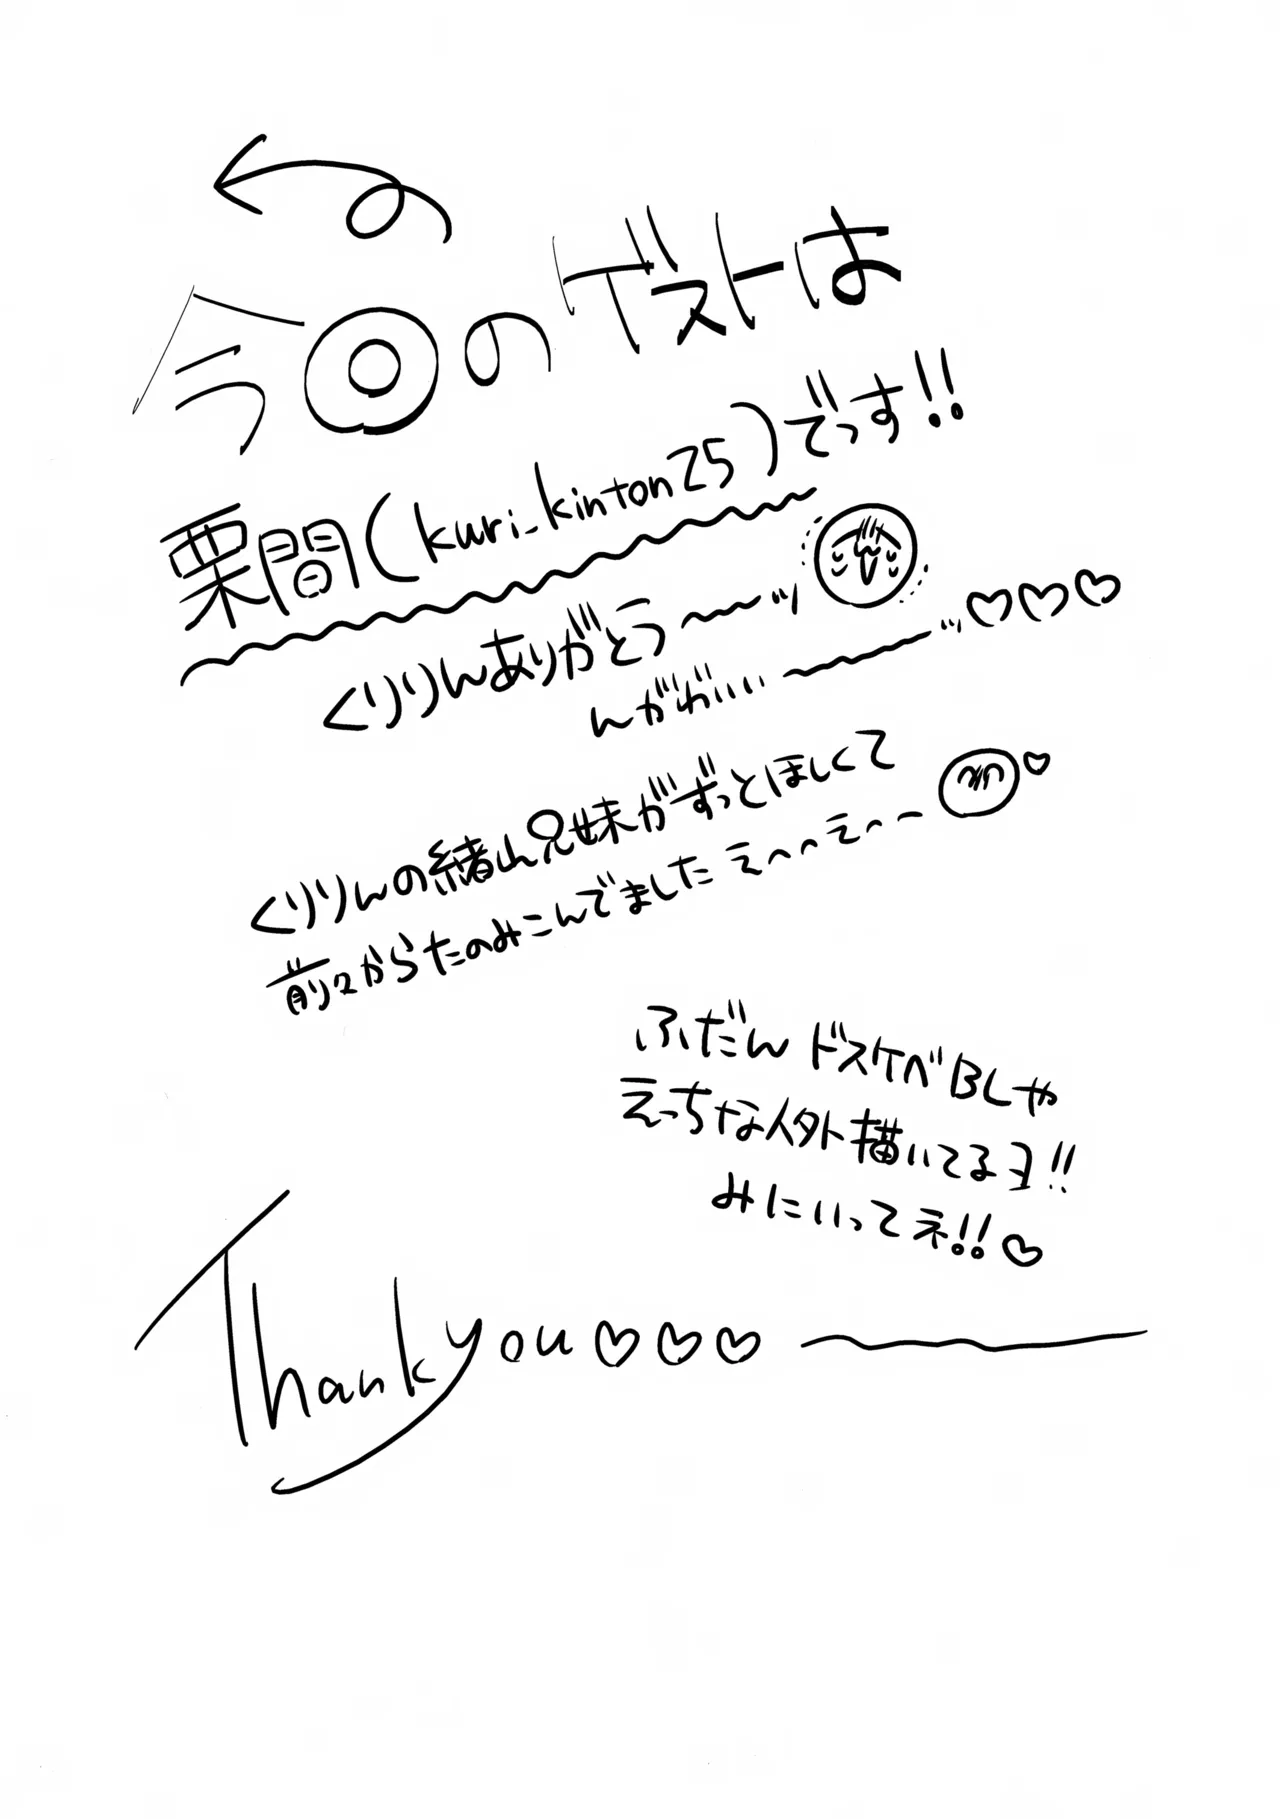 今回のゲストは
栗間(kuri_kinton25)でっす!!
くりりんありがとう〜〜ッ
んがわいい〜〜ッ♡♡♡
くりりんの緒山兄妹がずっとほしくて
前々からたのみこんでました えへへえへへ ♡
ふだん ドスケベBLや
えっちな人外描いてるヨ!!
みにいってネ!!♡
Thank you♡♡♡